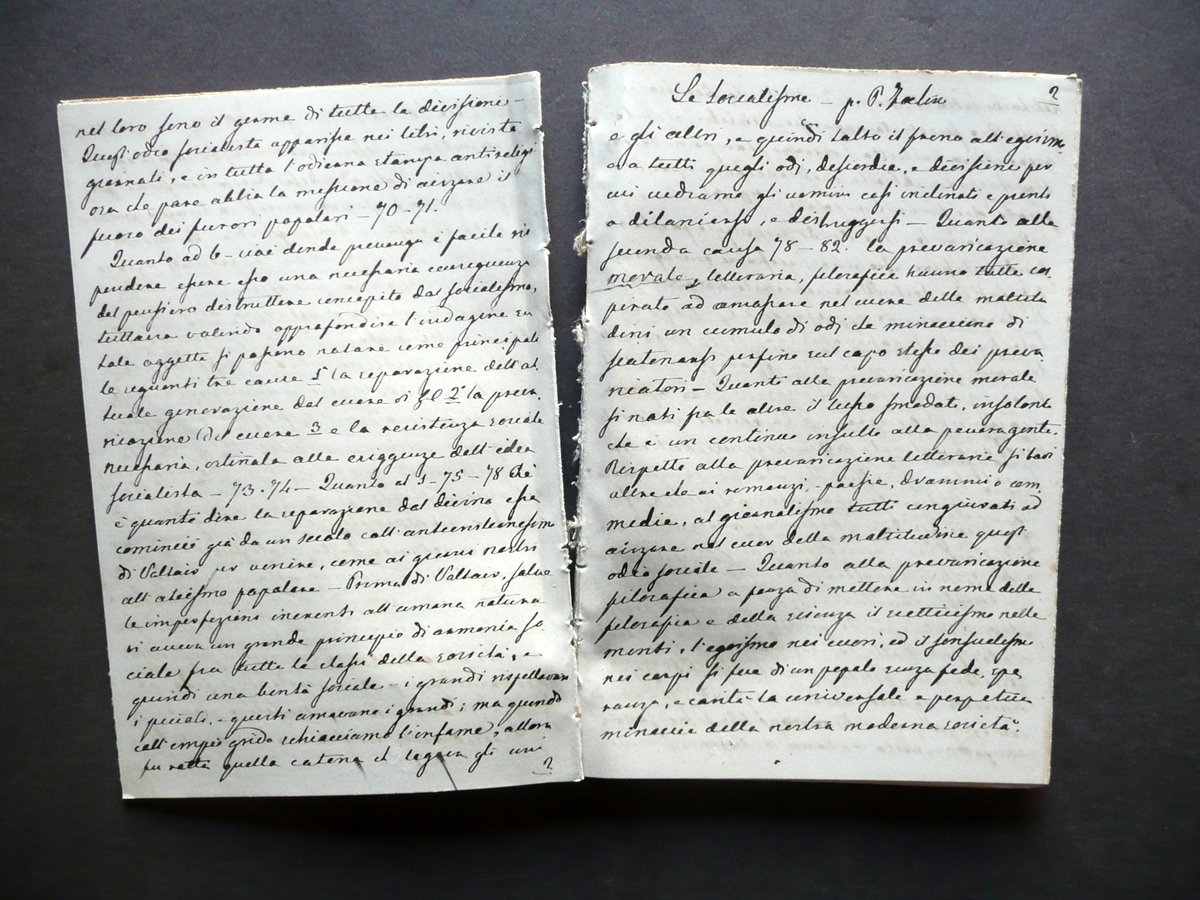 nel loro seno il germe di tutta la divisione –
Quest'odio socialista apparisce nei libri, riviste
giornali, e in tutta l'odierna stampa antireligi
osa che pare abbia la missione di aizzare il
fuoco dei furori popolari – 70–71.
Quanto ad 6 – d'onde provenga è facile ris
pondere essere esso una necessaria conseguenza
del pensiero distruttore concepito dal socialismo,
tuttavia volendo approfondire l'indagine su
tale oggetto si possono notare come principali
le seguenti tre cause 1ª la separazione dell'at
tuale generazione dal cuore di 2ª la preva
ricazione del cuore 3 e la resistenza sociale
necessaria, ostinata alle esigenze dell'idea
socialista – 73.74 – Quanto al 1 – 75 – 78 Ciò
è quanto dire la separazione dal divino essa
cominciò già da un secolo coll'anticristianesimo
di Voltair per venire, come ai giorni nostri
all'ateismo popolare – Prima di Voltair, salve
le imperfezioni inerenti all'umana natura
vi aveva un grande principio di armonia so
ciale fra tutte le classi della società, e
quindi una bontà sociale – i grandi rispettavano
i piccioli, e questi amavano i grandi; ma quando
coll'empio grido schiacciamo l'infame, allora
fu rotta quella catena che legava gli uni
2
Le Socialisme – p. P. Felix
2
e gli altri, e quindi tolto il freno all'egoismo
e a tutti quegli odi, discordie, e divisioni per
cui vediamo gli uomini così inclinati e pronti
a dilaniarsi, e distruggersi – Quanto alla
seconda causa 78–82 la prevaricazione
morale, letteraria, filosofica hanno tutte cos
pirato ad ammassare nel cuore delle moltitu
dini un cumulo di odi che minacciano di
scatenarsi perfino sul capo stesso dei preva
ricatori – Quanto alla prevaricazione morale
si noti fra le altre il lusso smodato, insolente
che è un continuo insulto alla povera gente.
Rispetto alla prevaricazione letteraria si badi
oltre che ai romanzi, poesie, drammi o com
medie, al giornalismo tutti congiurati ad
aizzare nel cuor della moltitudine quest'
odio sociale – Quanto alla prevaricazione
filosofica a forza di mettere in nome della
filosofia e della scienza il scetticismo nelle
menti, l'egoismo nei cuori, ed il sensualismo
nei corpi si fece di un popolo senza fede, spe
ranza, e carità la universale e perpetua
minaccia della nostra moderna società.